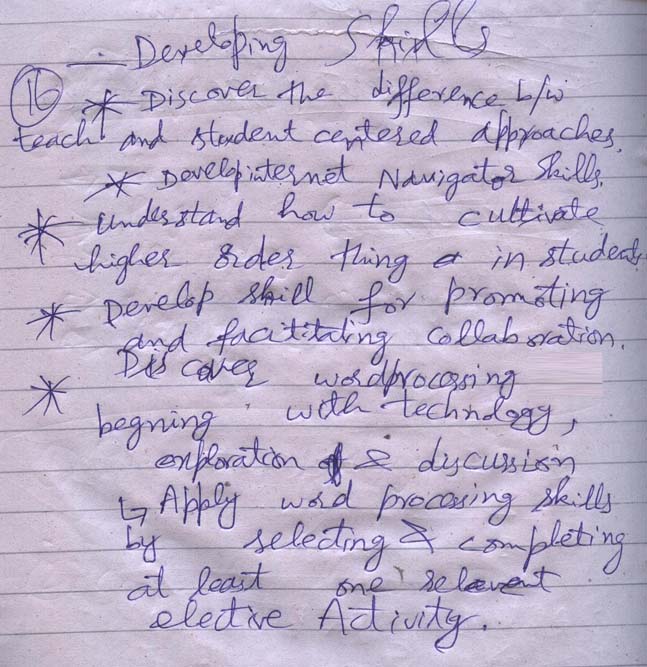 — Developing Skills
16 * Discover the difference b/w
teach and student centered approaches.
* Develop internet Navigator skills.
* Understand how to cultivate
higher order thing in students
* Develop skill for promoting
and facititating collaboration.
* Discover wordprocessing
begning with technology,
exploration & discussion
↳ Apply word processing skills
by selecting & completing
at least one relevent
elective Activity.